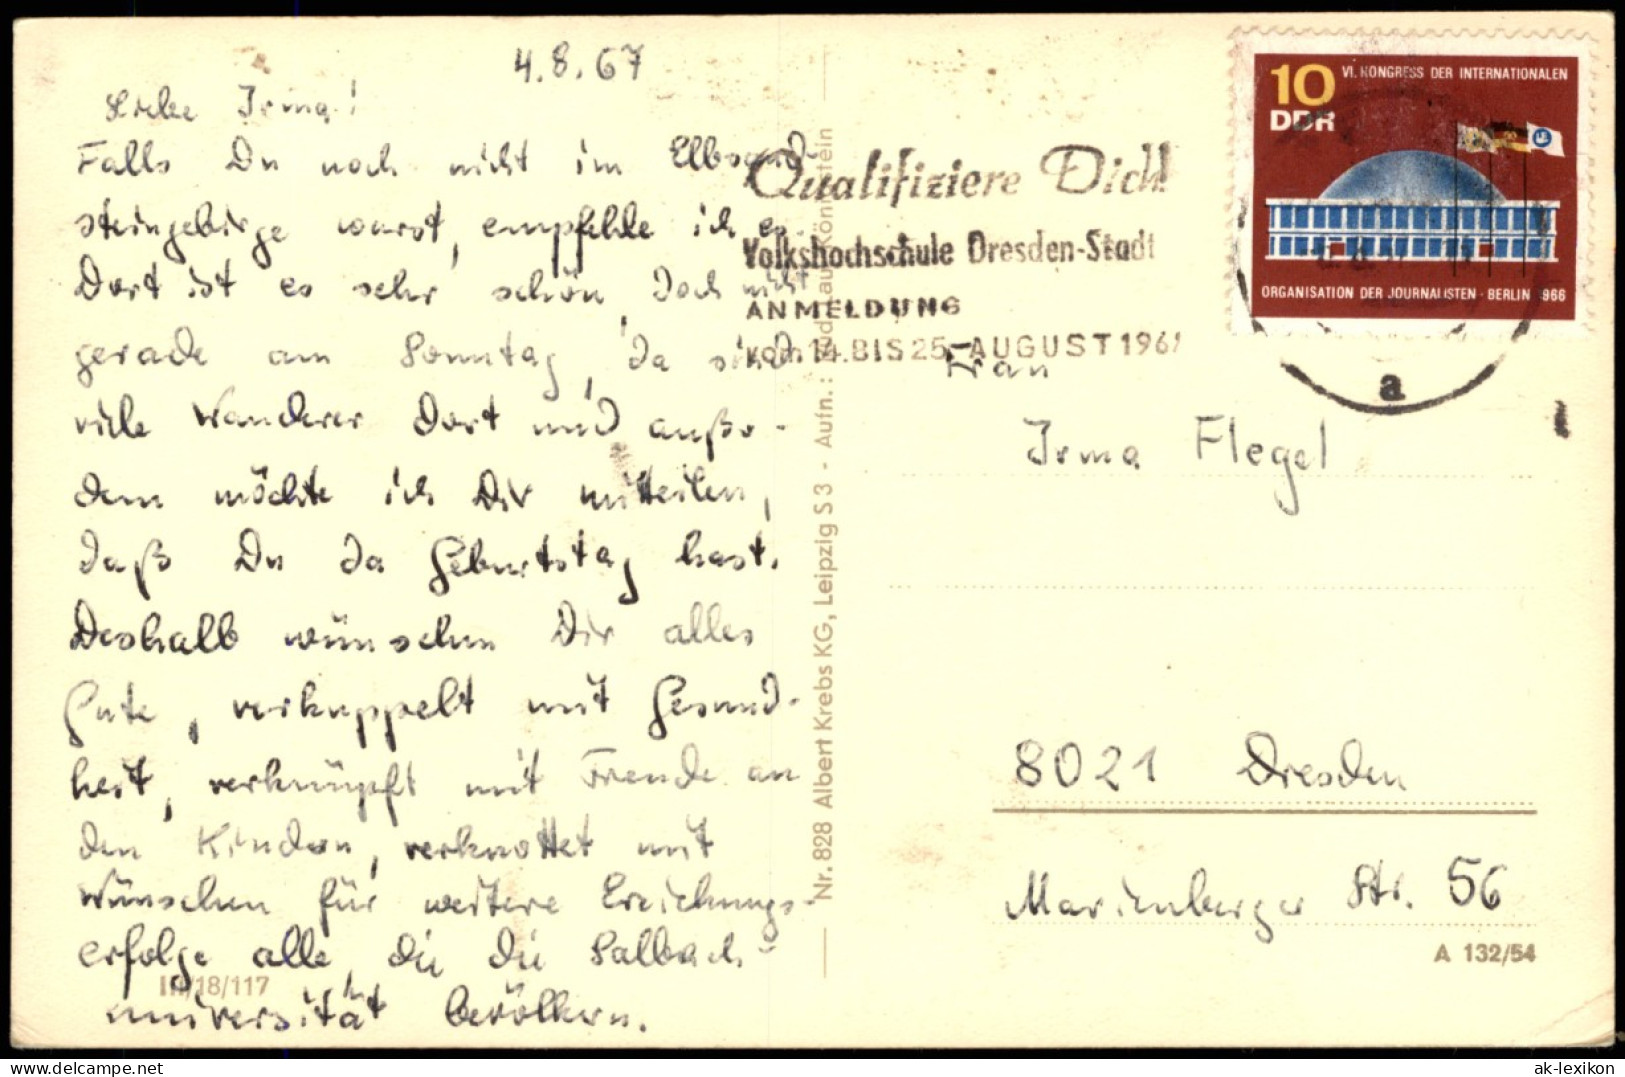 4.8.67
Liebe Irma!
Falls Du noch nicht im Elbsand-
steingebirge warst, empfehle ich es.
Dort ist es sehr schön, doch nicht
gerade am Sonntag, da sind
viele Wanderer dort und außer-
dem möchte ich Dir mitteilen,
daß Du da Geburtstag hast.
Deshalb wünschen Dir alles
Gute, verkuppelt mit Gesund-
heit, verknüpft mit Freude an
den Kindern, verknottet mit
Wünschen für weitere Erziehungs-
erfolge alle, die die Salbach-
universität bevölkern.
III/18/117
Nr. 828 Albert Krebs KG, Leipzig S 3 - Aufn.:
Qualifiziere Dich!
Volkshochschule Dresden-Stadt
ANMELDUNG
vom 14. BIS 25. AUGUST 1967
10
DDR
VI. KONGRESS DER INTERNATIONALEN
ORGANISATION DER JOURNALISTEN · BERLIN 1966
a
Frau
Irma Flegel
8021 Dresden
Marienberger Str. 56
A 132/54
ak-ansichtskarten.de
ak-lexikon